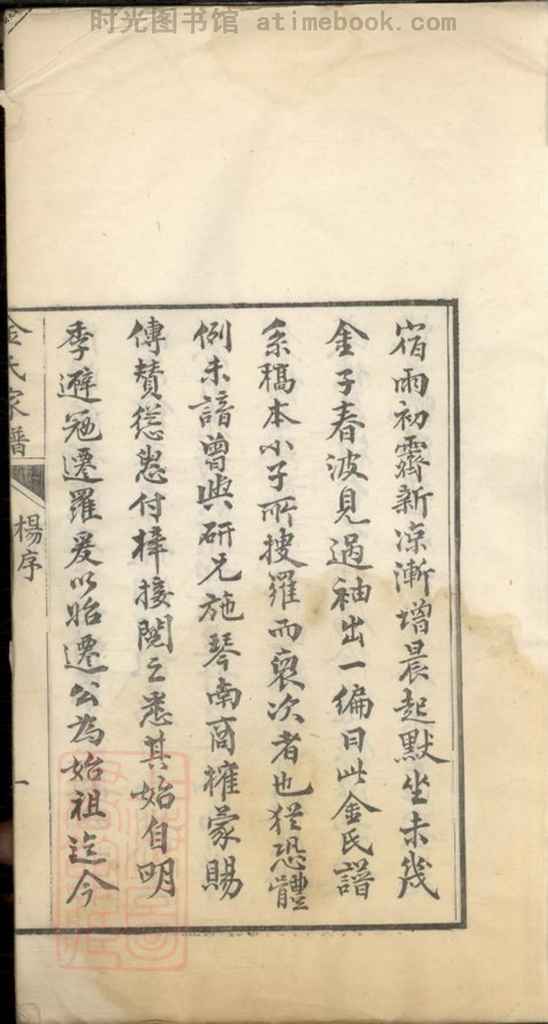 时光图书馆 - atimebook.com
宿雨初霽新凉漸增晨起默坐未幾
金子春波見過袖出一編曰此金氏譜
系稿本小子所搜羅而裒次者也猶恐體
例未諳曾與研兄施琴南商搉蒙賜
傳贊慫恿付梓接閱之悉其始自明
季避冦遷羅爰以貽遷公為始祖迄今
金氏家譜
楊序
一